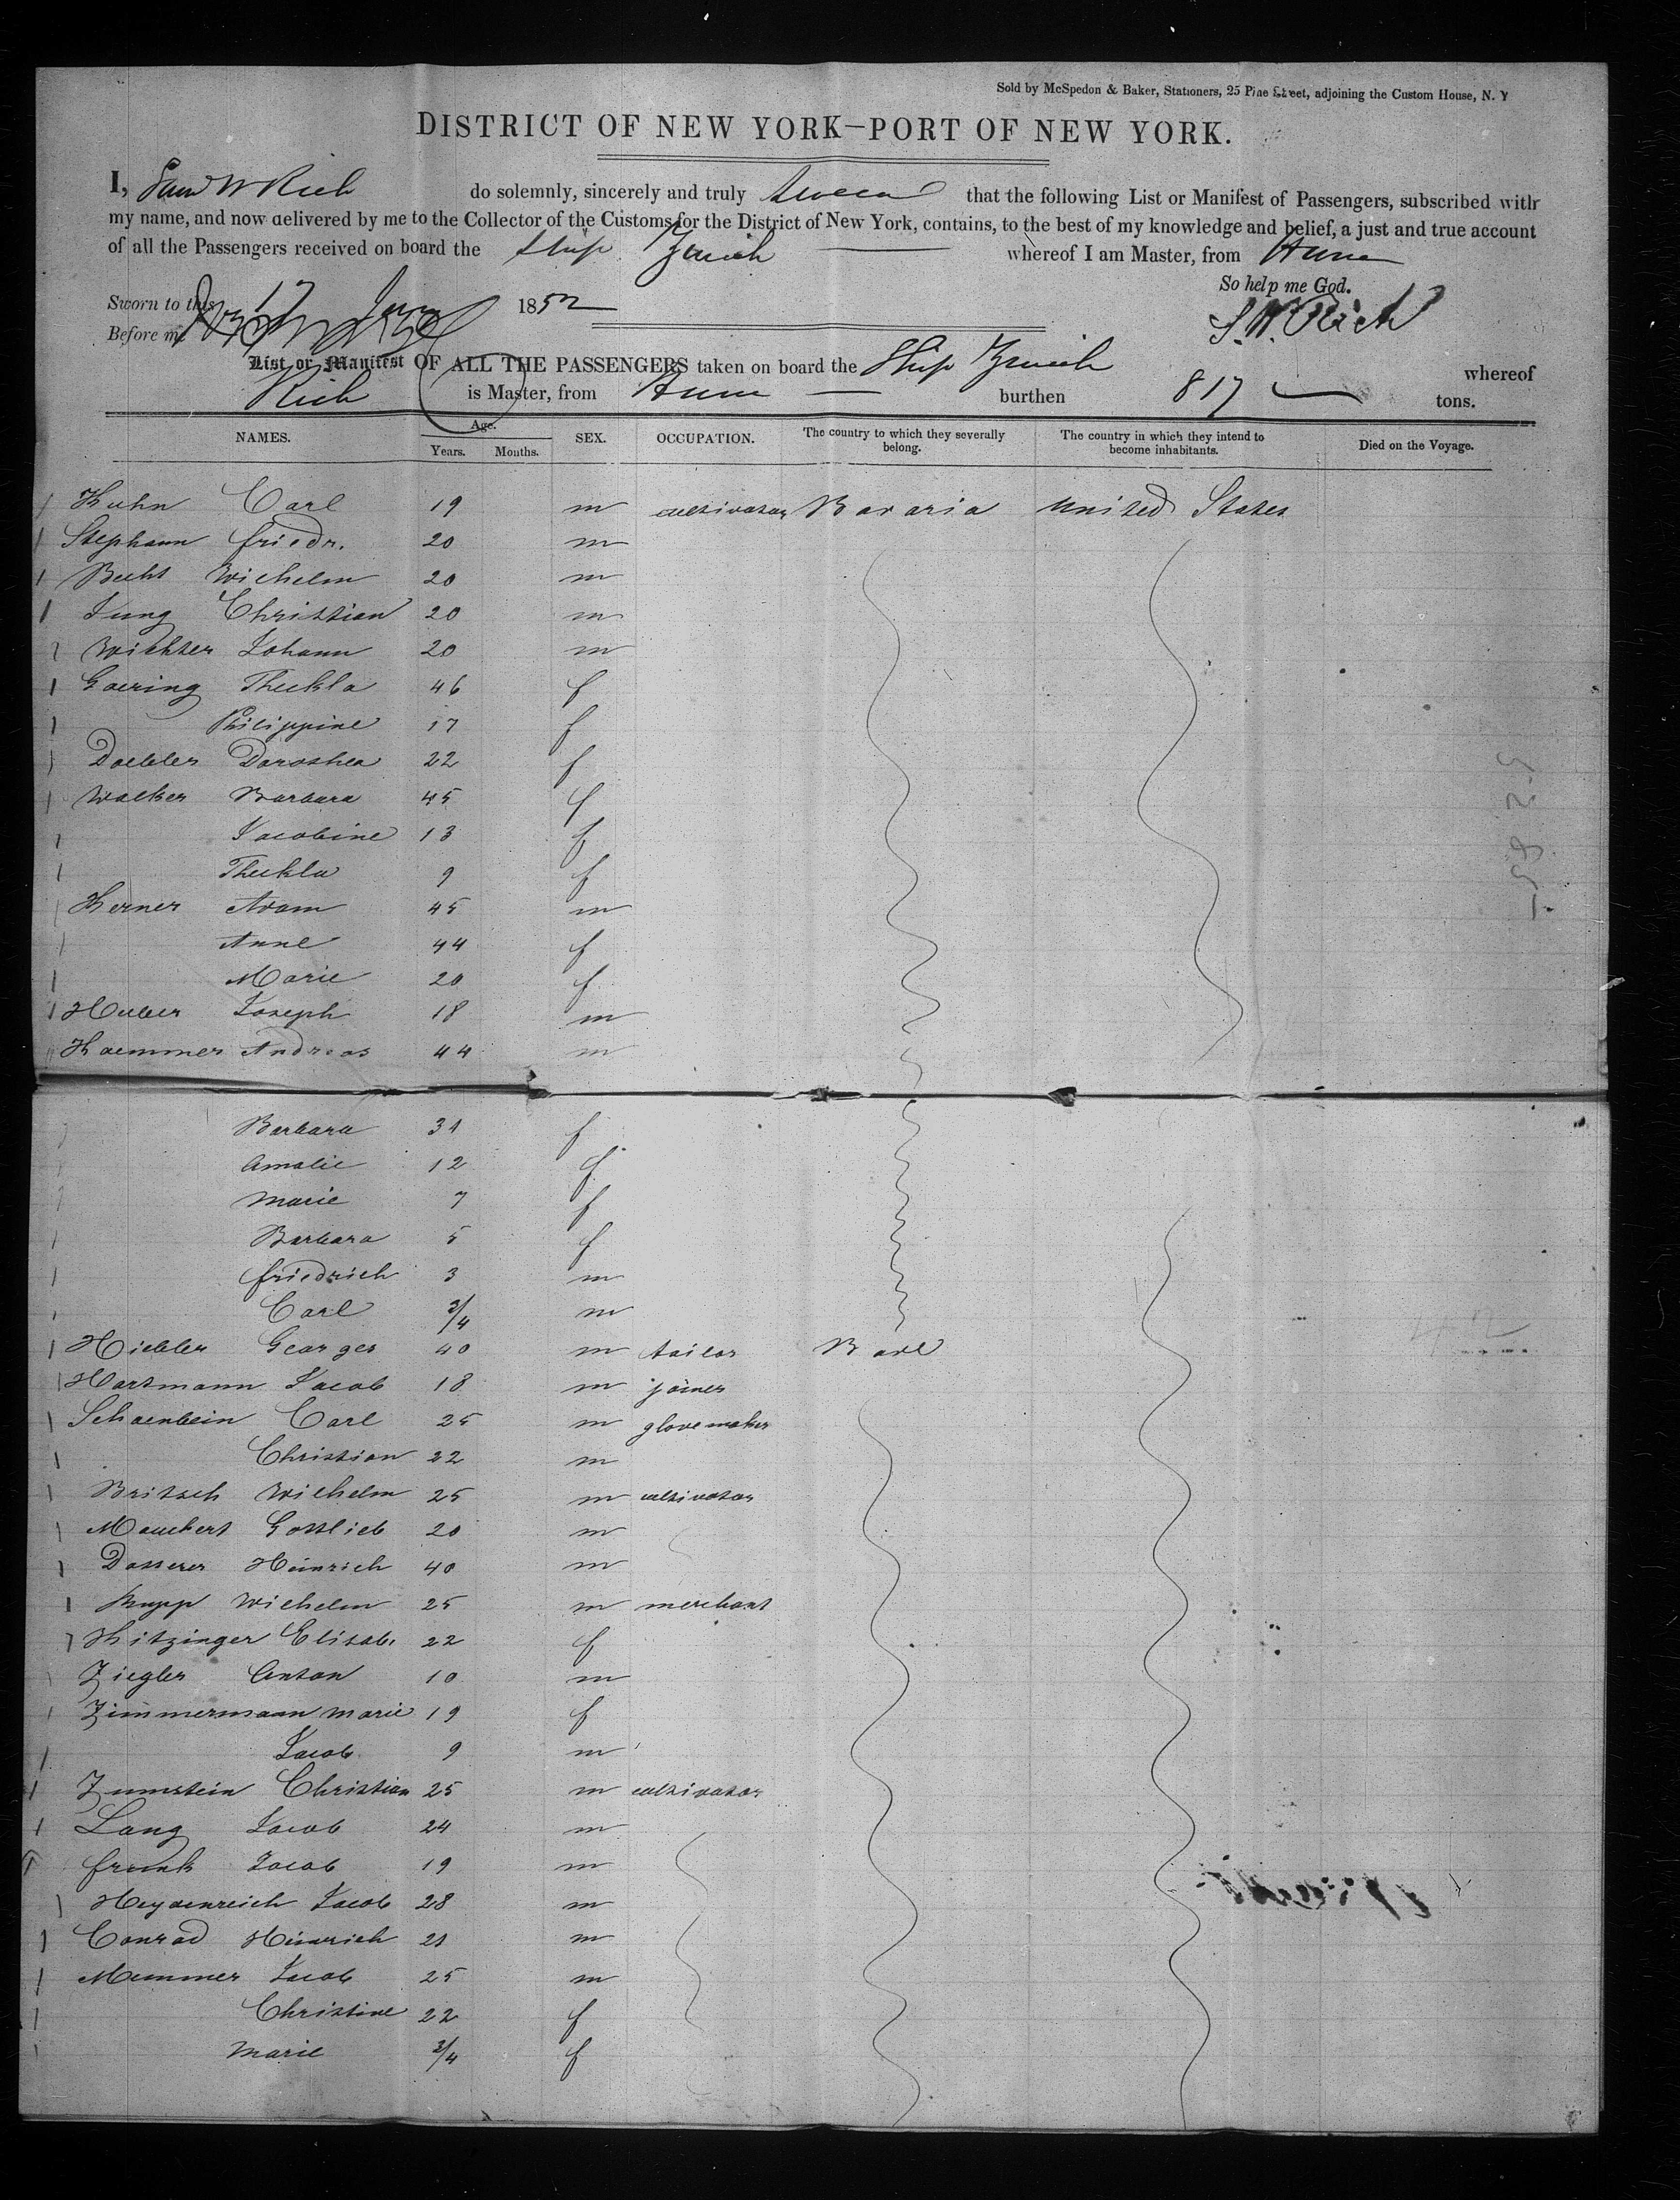 Sold by McSpedon & Baker, Stationers, 25 Pine Street, adjoining the Custom House, N. Y
DISTRICT OF NEW YORK—PORT OF NEW YORK.
I, Saml W Rich do solemnly, sincerely and truly swear that the following List or Manifest of Passengers, subscribed with
my name, and now delivered by me to the Collector of the Customs for the District of New York, contains, to the best of my knowledge and belief, a just and true account
of all the Passengers received on board the Ship Zurich whereof I am Master, from Havre
So help me God.
Sworn to this 17 June 1852
S. W. Rich
Before me
List or Manifest OF ALL THE PASSENGERS taken on board the Ship Zurich whereof
Rich is Master, from Havre burthen 817 tons.
NAMES. Age. Years. Months. SEX. OCCUPATION. The country to which they severally belong. The country in which they intend to become inhabitants. Died on the Voyage.
Kuhn Carl 19 m cultivator Bavaria United States
Stephann friedr. 20 m
Becht Wilhelm 20 m
Jung Christian 20 m
Wichter Johann 20 m
Goering Theckla 46 f
Philippine 17 f
Daebler Dorothea 22 f
Walker Barbara 45 f
Jacobine 13 f
Theckla 9 f
Kerner Adam 45 m
Anne 44 f
Marie 20 f
Huber Joseph 18 m
Kaemmer Andreas 44 m
Barbara 31 f
Amalie 12 f
Marie 7 f
Barbara 5 f
friedrich 3 m
Carl 3/4 m
Hiebler Georges 40 m tailor Bade
Hartmann Jacob 18 m joiner
Schaenbein Carl 25 m glovemaker
Christian 22 m
Britsch Wilhelm 25 m cultivator
Mauchert Gottlieb 20 m
Dosserer Heinrich 40 m
Rupp Wilhelm 25 m merchant
Kitzinger Elisab. 22 f
Ziegler Anton 10 m
Zimmermann Marie 19 f
Jacob 9 m
Zumstein Christian 25 m cultivator
Lang Jacob 24 m
frank Jacob 19 m
Heydenreich Jacob 28 m
Conrad Heinrich 21 m
Mummer Jacob 25 m
Christine 22 f
Marie 3/4 f